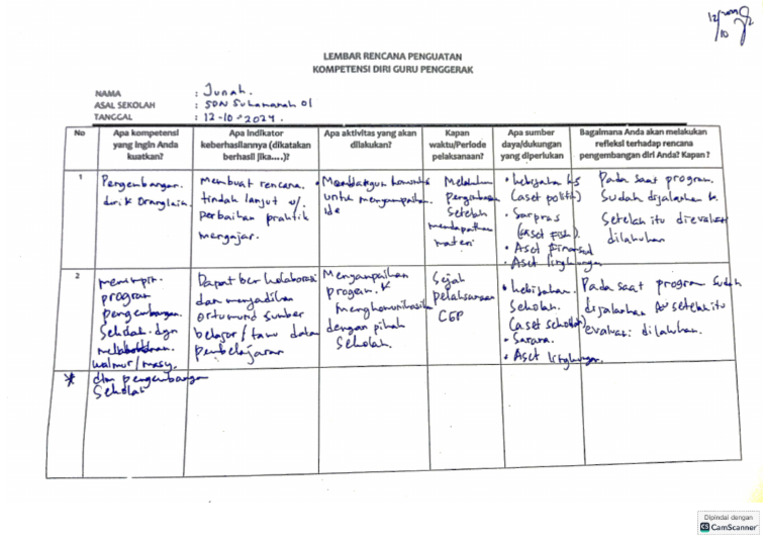 12/10
LEMBAR RENCANA PENGUATAN
KOMPETENSI DIRI GURU PENGGERAK
NAMA : Junah.
ASAL SEKOLAH : SDN Sukamanah 01
TANGGAL : 12-10-2024.
No
Apa kompetensi
yang ingin Anda
kuatkan?
Apa indikator
keberhasilannya (dikatakan
berhasil jika....)?
Apa aktivitas yang akan
dilakukan?
Kapan
waktu/Periode
pelaksanaan?
Apa sumber
daya/dukungan
yang diperlukan
Bagaimana Anda akan melakukan
refleksi terhadap rencana
pengembangan diri Anda? Kapan ?
1
Pengembangan.
diri & Orang lain.
Membuat rencana.
tindah lanjut u/
perbaihan praktik
mengajar.
• Membangun komunitas
untuk menyampaihan
ide
Melakukan
Setelah
mendapathan
materi
• kebijakan KS
(aset politik)
• Sarpras
(Aset Fisik).
• Aset Finansial
• Aset lingkungan
Pada saat program.
Sudah dijalankan &
Setelah itu dievaluasi
dilakukan
2
memimpin.
program
pengembangan.
Sekolah. dgn
walmur/masy.
dlm pengembangan
Sekolah
Dapat ber kolaborasi
dan menjadikan
sumber
belajar/tamu dalam
Pembelajaran
Menyampaihan
program. &
menghomunihasikan
dengan pihak
Sekolah.
Sejak
pelaksanaan
CGP
• kebijakan.
Sekolah.
(aset sekolah)
• Sarana.
• Aset lingkungan.
Pada saat program sudah
dijalankan & setelah itu
evaluasi dilakukan.
*
Dipindai dengan
CS CamScanner